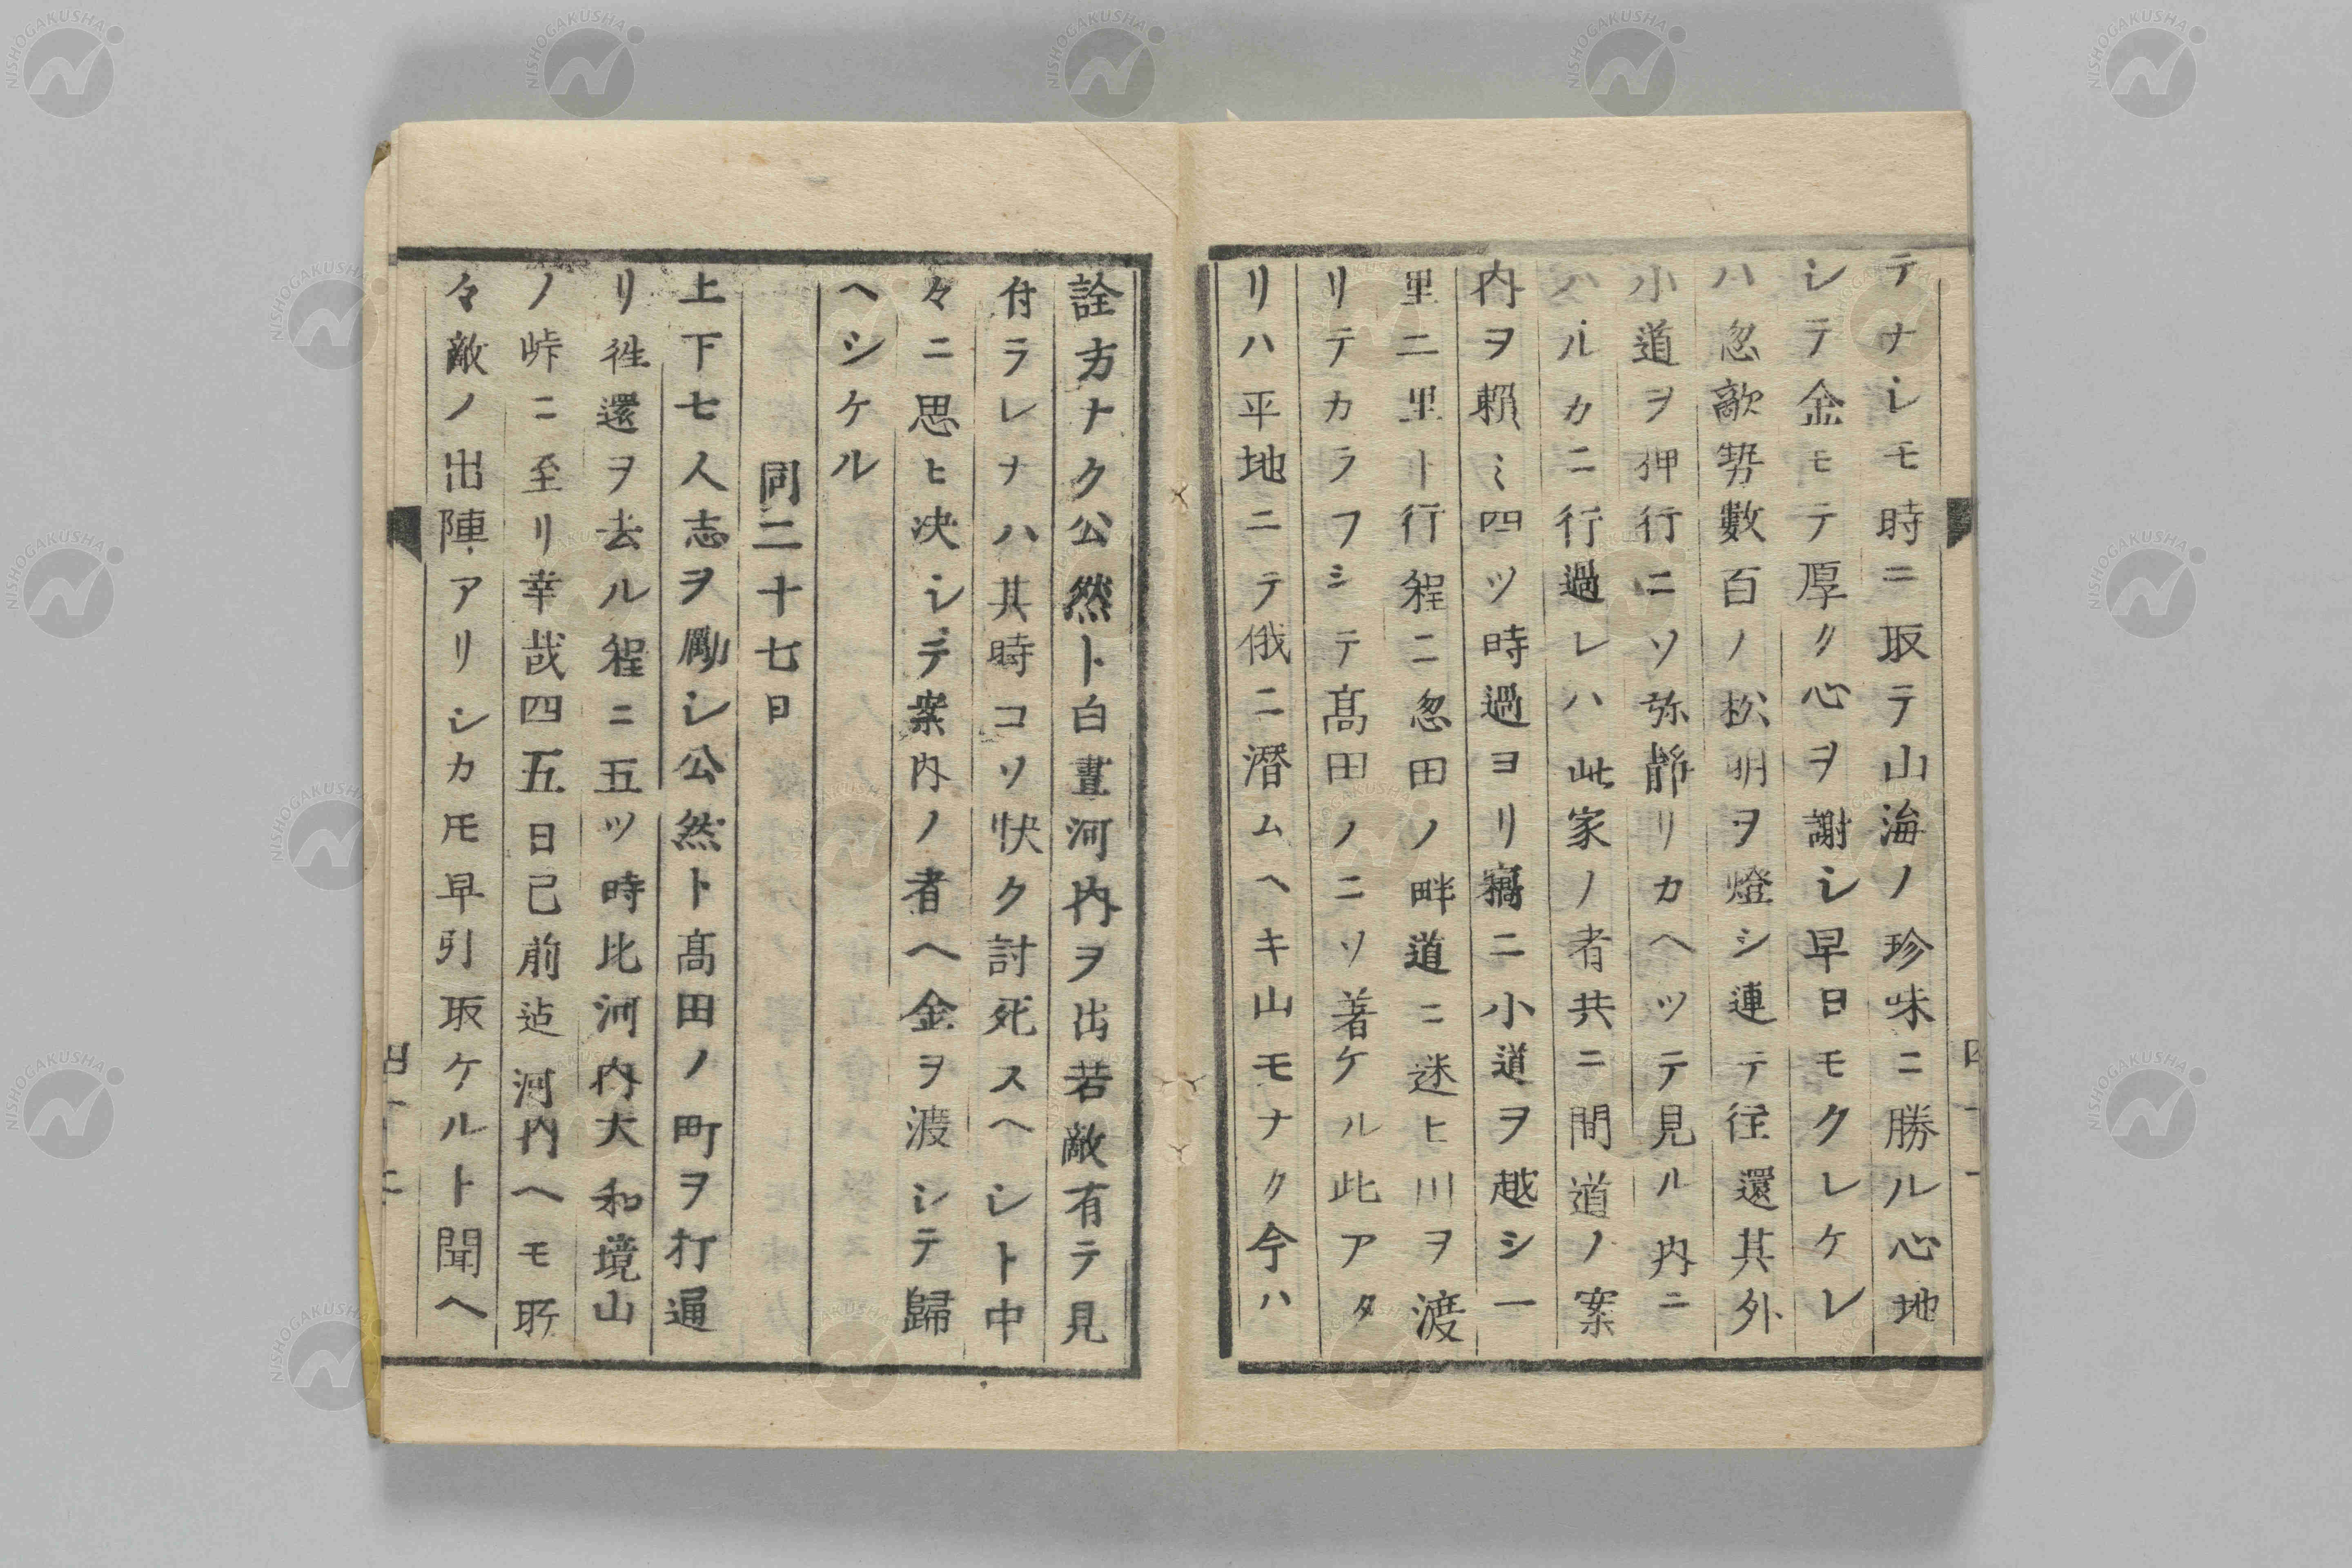 テナレモ時ニ取テ山海ノ珍味ニ勝ル心地
シテ金モテ厚ク心ヲ謝シ早日モクレケレ
ハ忽敵勢数百ノ松明ヲ燈シ連テ往還其外
小道ヲ押行ニソ弥静リカヘツテ見ル内ニ
ハルカニ行過レハ此家ノ者共ニ間道ノ案
内ヲ頼ミ四ツ時過ヨリ竊ニ小道ヲ越シ一
里二里ト行程ニ忽田ノ畔道ニ迷ヒ川ヲ渡
リテカラフシテ髙田ノニソ著ケル此アタ
リハ平地ニテ俄ニ潜ムヘキ山モナク今ハ
詮方ナク公然ト白晝河内ヲ出若敵有テ見
付ラレナハ其時コソ快ク討死スヘシト中
々ニ思ヒ决シテ案内ノ者ヘ金ヲ渡シテ歸
ヘシケル
同二十七日
上下七人志ヲ勵シ公然ト髙田ノ町ヲ打通
リ徃還ヲ去ル程ニ五ツ時比河内大和境山
ノ峠ニ至リ幸哉四五日已前迠河内ヘモ所
々敵ノ出陣アリシカ𪜈早引取ケルト聞ヘ
四十二
NISHOGAKUSHA